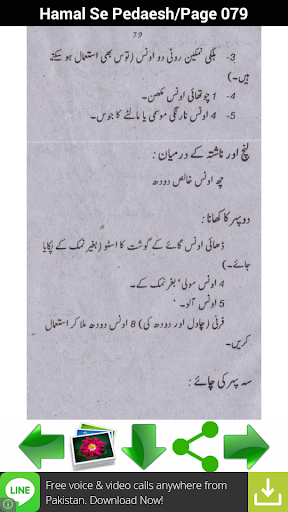 Hamal Se Pedaesh/Page 079
79
3- ہلکی نمکین روٹی دو اونس (توس بھی استعمال ہو سکتے
ہیں۔)
4- 1 چوتھائی اونس مکھن۔
5- 4 اونس نارنگی موسمی یا مالٹے کا جوس۔
لنچ اور ناشتہ کے درمیان:
چھ اونس خالص دودھ
دوپہر کا کھانا:
ڈھائی اونس گائے کے گوشت کا اسٹو (بغیر نمک کے پکایا
جائے۔)
4 اونس مولی' بغیر نمک کے۔
5 اونس آلو۔
فرنی (چاول اور دودھ کی) 8 اونس دودھ ملا کر استعمال
کریں۔
سہ پہر کی چائے:
LINE
Free voice & video calls anywhere from
Pakistan. Download Now!